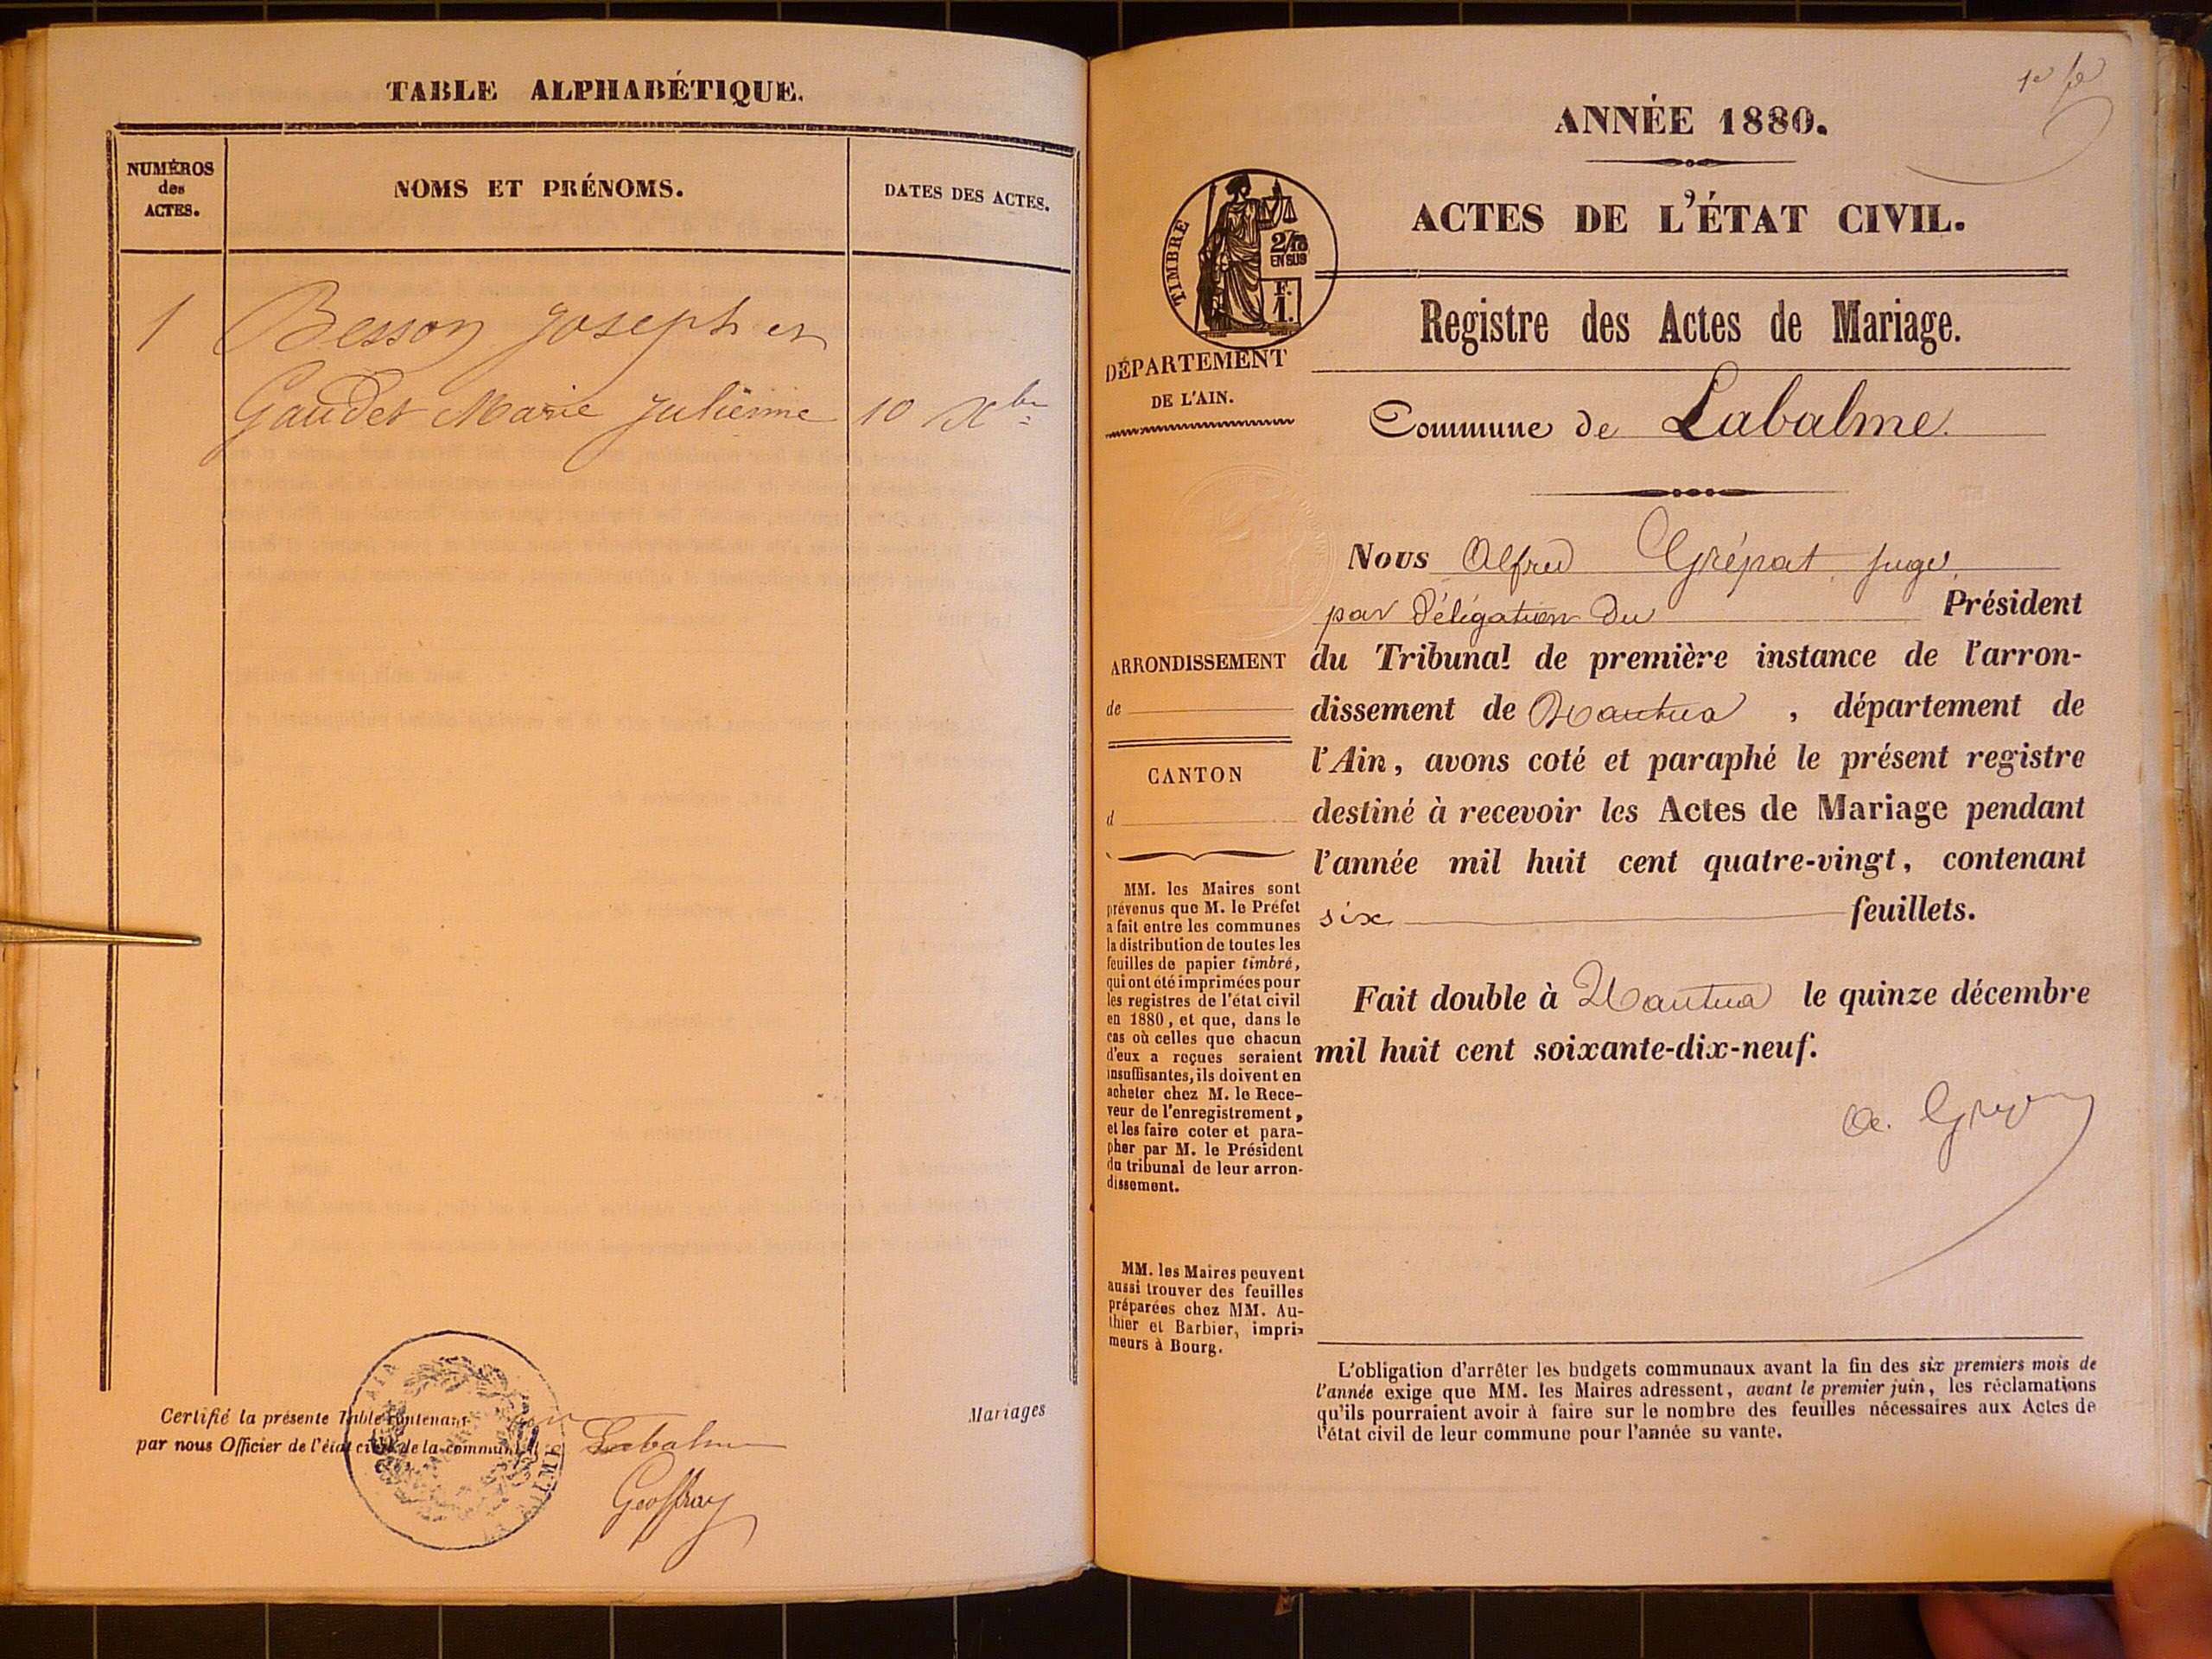 TABLE ALPHABÉTIQUE.
NUMÉROS
des
ACTES.
NOMS ET PRÉNOMS.
DATES DES ACTES.
1 Besson Joseph et
Gaudet Marie Julienne 10 Xbre
Certifié la présente Table contenant un Mariages
par nous Officier de l'état civil de la commune de Labalme
Geoffray
1er fe
ANNÉE 1880.
ACTES DE L'ÉTAT CIVIL.
TIMBRE
2/10
EN SUS
F.
1.
Registre des Actes de Mariage.
DÉPARTEMENT
DE L'AIN.
Commune de Labalme.
Nous Alfred Grépat, juge
par délégation du Président
du Tribunal de première instance de l'arron-
dissement de Nantua, département de
l'Ain, avons coté et paraphé le présent registre
destiné à recevoir les Actes de Mariage pendant
l'année mil huit cent quatre-vingt, contenant
six feuillets.
Fait double à Nantua le quinze décembre
mil huit cent soixante-dix-neuf.
ARRONDISSEMENT
de
CANTON
d
MM. les Maires sont
prévenus que M. le Préfet
a fait entre les communes
la distribution de toutes les
feuilles de papier timbré,
qui ont été imprimées pour
les registres de l'état civil
en 1880, et que, dans le
cas où celles que chacun
d'eux a reçues seraient
insuffisantes, ils doivent en
acheter chez M. le Rece-
veur de l'enregistrement,
et les faire coter et para-
pher par M. le Président
du tribunal de leur arron-
dissement.
MM. les Maires peuvent
aussi trouver des feuilles
préparées chez MM. Au-
thier et Barbier, impri-
meurs à Bourg.
L'obligation d'arrêter les budgets communaux avant la fin des six premiers mois de
l'année exige que MM. les Maires adressent, avant le premier juin, les réclamations
qu'ils pourraient avoir à faire sur le nombre des feuilles nécessaires aux Actes de
l'état civil de leur commune pour l'année su vante.